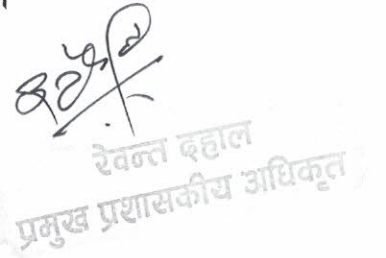 रेवन्त दहाल
प्रमुख प्रशासकीय अधिकृत